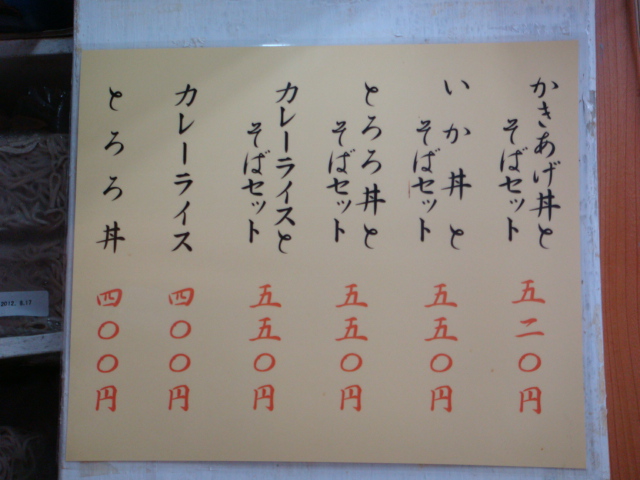 かきあげ丼と
そばセット
五二〇円
いか丼と
そばセット
五五〇円
とろろ丼と
そばセット
五五〇円
カレーライスと
そばセット
五五〇円
カレーライス
四〇〇円
とろろ丼
四〇〇円
2012. 9.17